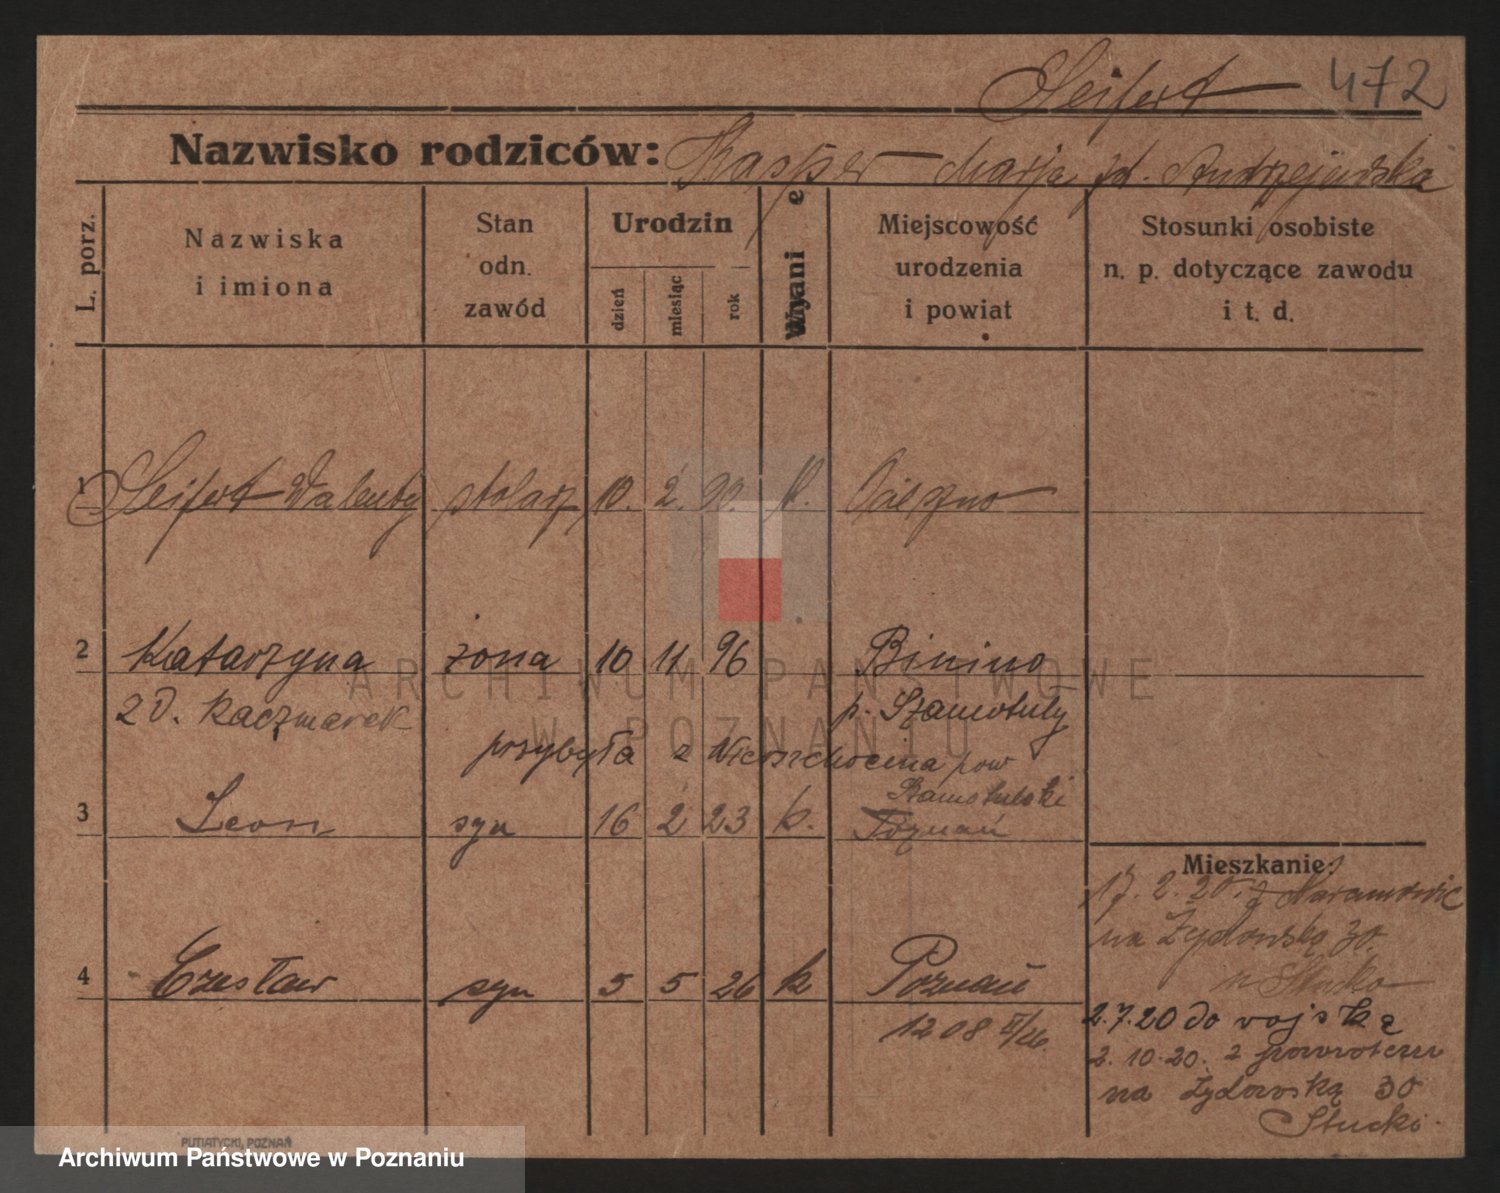 Seifert 472
Nazwisko rodziców: Kasper Marja zd. Andrzejewska
L. porz.
Nazwiska i imiona
Stan odn. zawód
Urodzin
dzień miesiąc rok
Miejscowość urodzenia i powiat
Stosunki osobiste n. p. dotyczące zawodu i t. d.
1 Seifert Walenty stolarz 10. 2. 90. k.
2 Katarzyna żona 10 11 96 Binino
zd. Kaczmarek p. Szamotuły
przybyła z pow
Szamotulski
3 Leon syn 16 2 23 k. Poznań
Mieszkanie:
17. 2. 20. z Naramowic
na Żydowską 30.
u Stucko
4 Czesław syn 5 5 26 k Poznań
1208
2.7.20 do wojska
2.10.20. z powrotem
na Żydowską 30
Stucki
PUTIATYCKI, POZNAŃ
ARCHIWUM PAŃSTWOWE
W POZNANIU
Archiwum Państwowe w Poznaniu